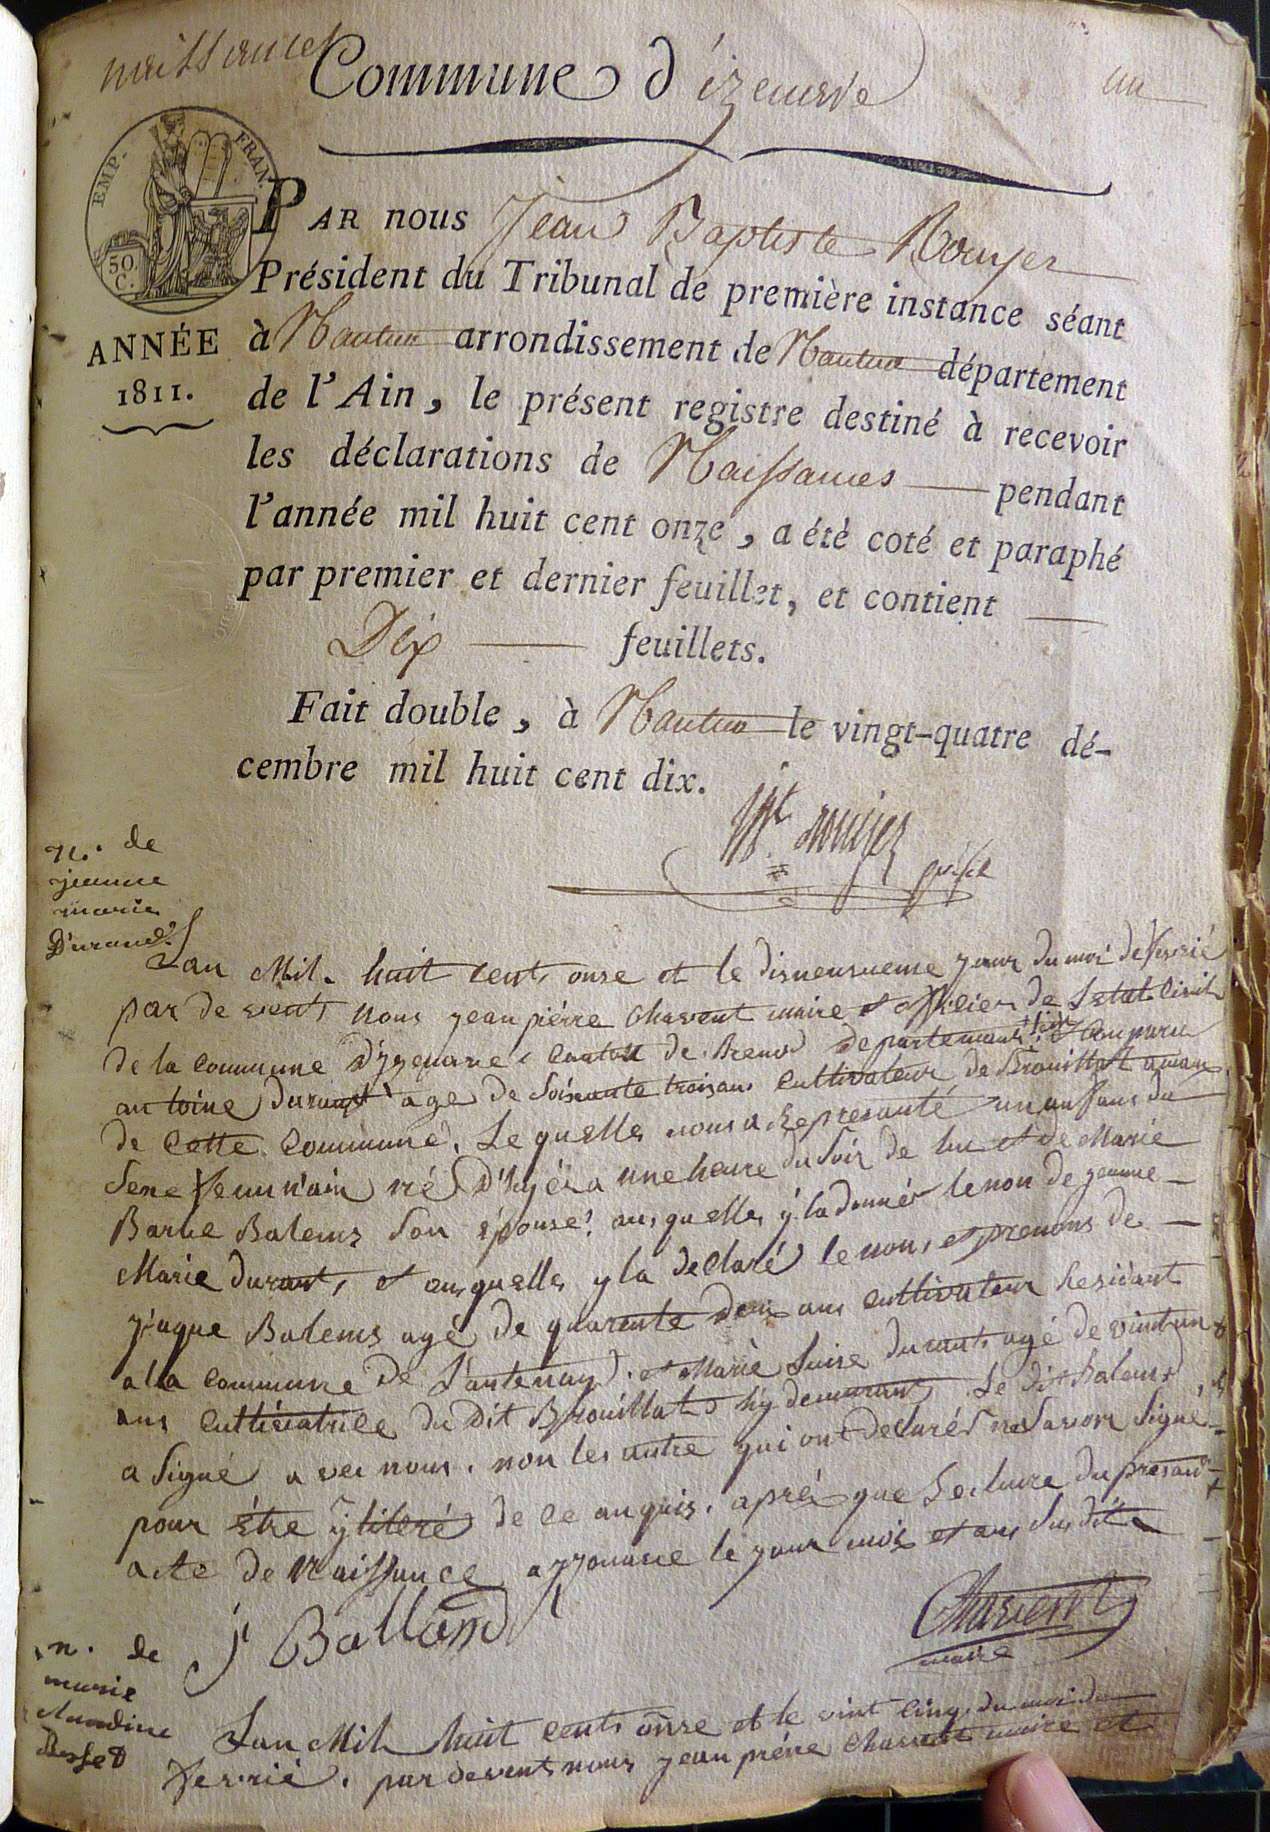 naissances
Commune d'izenave
un
EMP. FRAN.
50 C.
ANNÉE
1811.
PAR nous Jean Baptiste Rouyer
Président du Tribunal de première instance séant
à Nantua arrondissement de Nantua département
de l'Ain, le présent registre destiné à recevoir
les déclarations de Naissances pendant
l'année mil huit cent onze, a été coté et paraphé
par premier et dernier feuillet, et contient
Dix feuillets.
Fait double, à Nantua le vingt-quatre dé-
cembre mil huit cent dix.
Bte rouyer
présid
n. de
jeanne
marie
Durand
Lan Mil. huit cent onse et le disneuvueme jour du moi de fevrié
par de vent nous jean piérre Charvent maire et officier de Letat Civil
de la commune D'yzenave canton de Brenod departement de Lain Comparu
antoine Durant age de Soisante trois ans Cultivateur de Brouillat amau
de Cette Commune. Le quelle nous a Representé un anfans du
Sexe femin'ain né D'hyér a une heure du Soir de lui et de Marie
Balems Son épouse. auquelle y la donné le non de jeanne
Marie durant, et auquelle y la declaré le non, et prenons de
jaque Balems agé de quarente deux ans Cultivateur Residant
a la commune de Lantenay. et Marie Luise durant agé de vint un
ans Cultivatrice du Dit Brouillat hy demurant Le dit Balems
a Signé avec nous. non les autre qui ont declurés ne Savoir Signé
pour étre de ce anquis. aprés que Lecture du presant
acte de naissance a yzenave le jour mois et ans Susdit
j Balland
Charvent
maire
n. de
marie
claudine
Lan Mil huit cent onse et le vint Cinq du moi de
fevrié. par devent nous jean piérre Charvent maire et